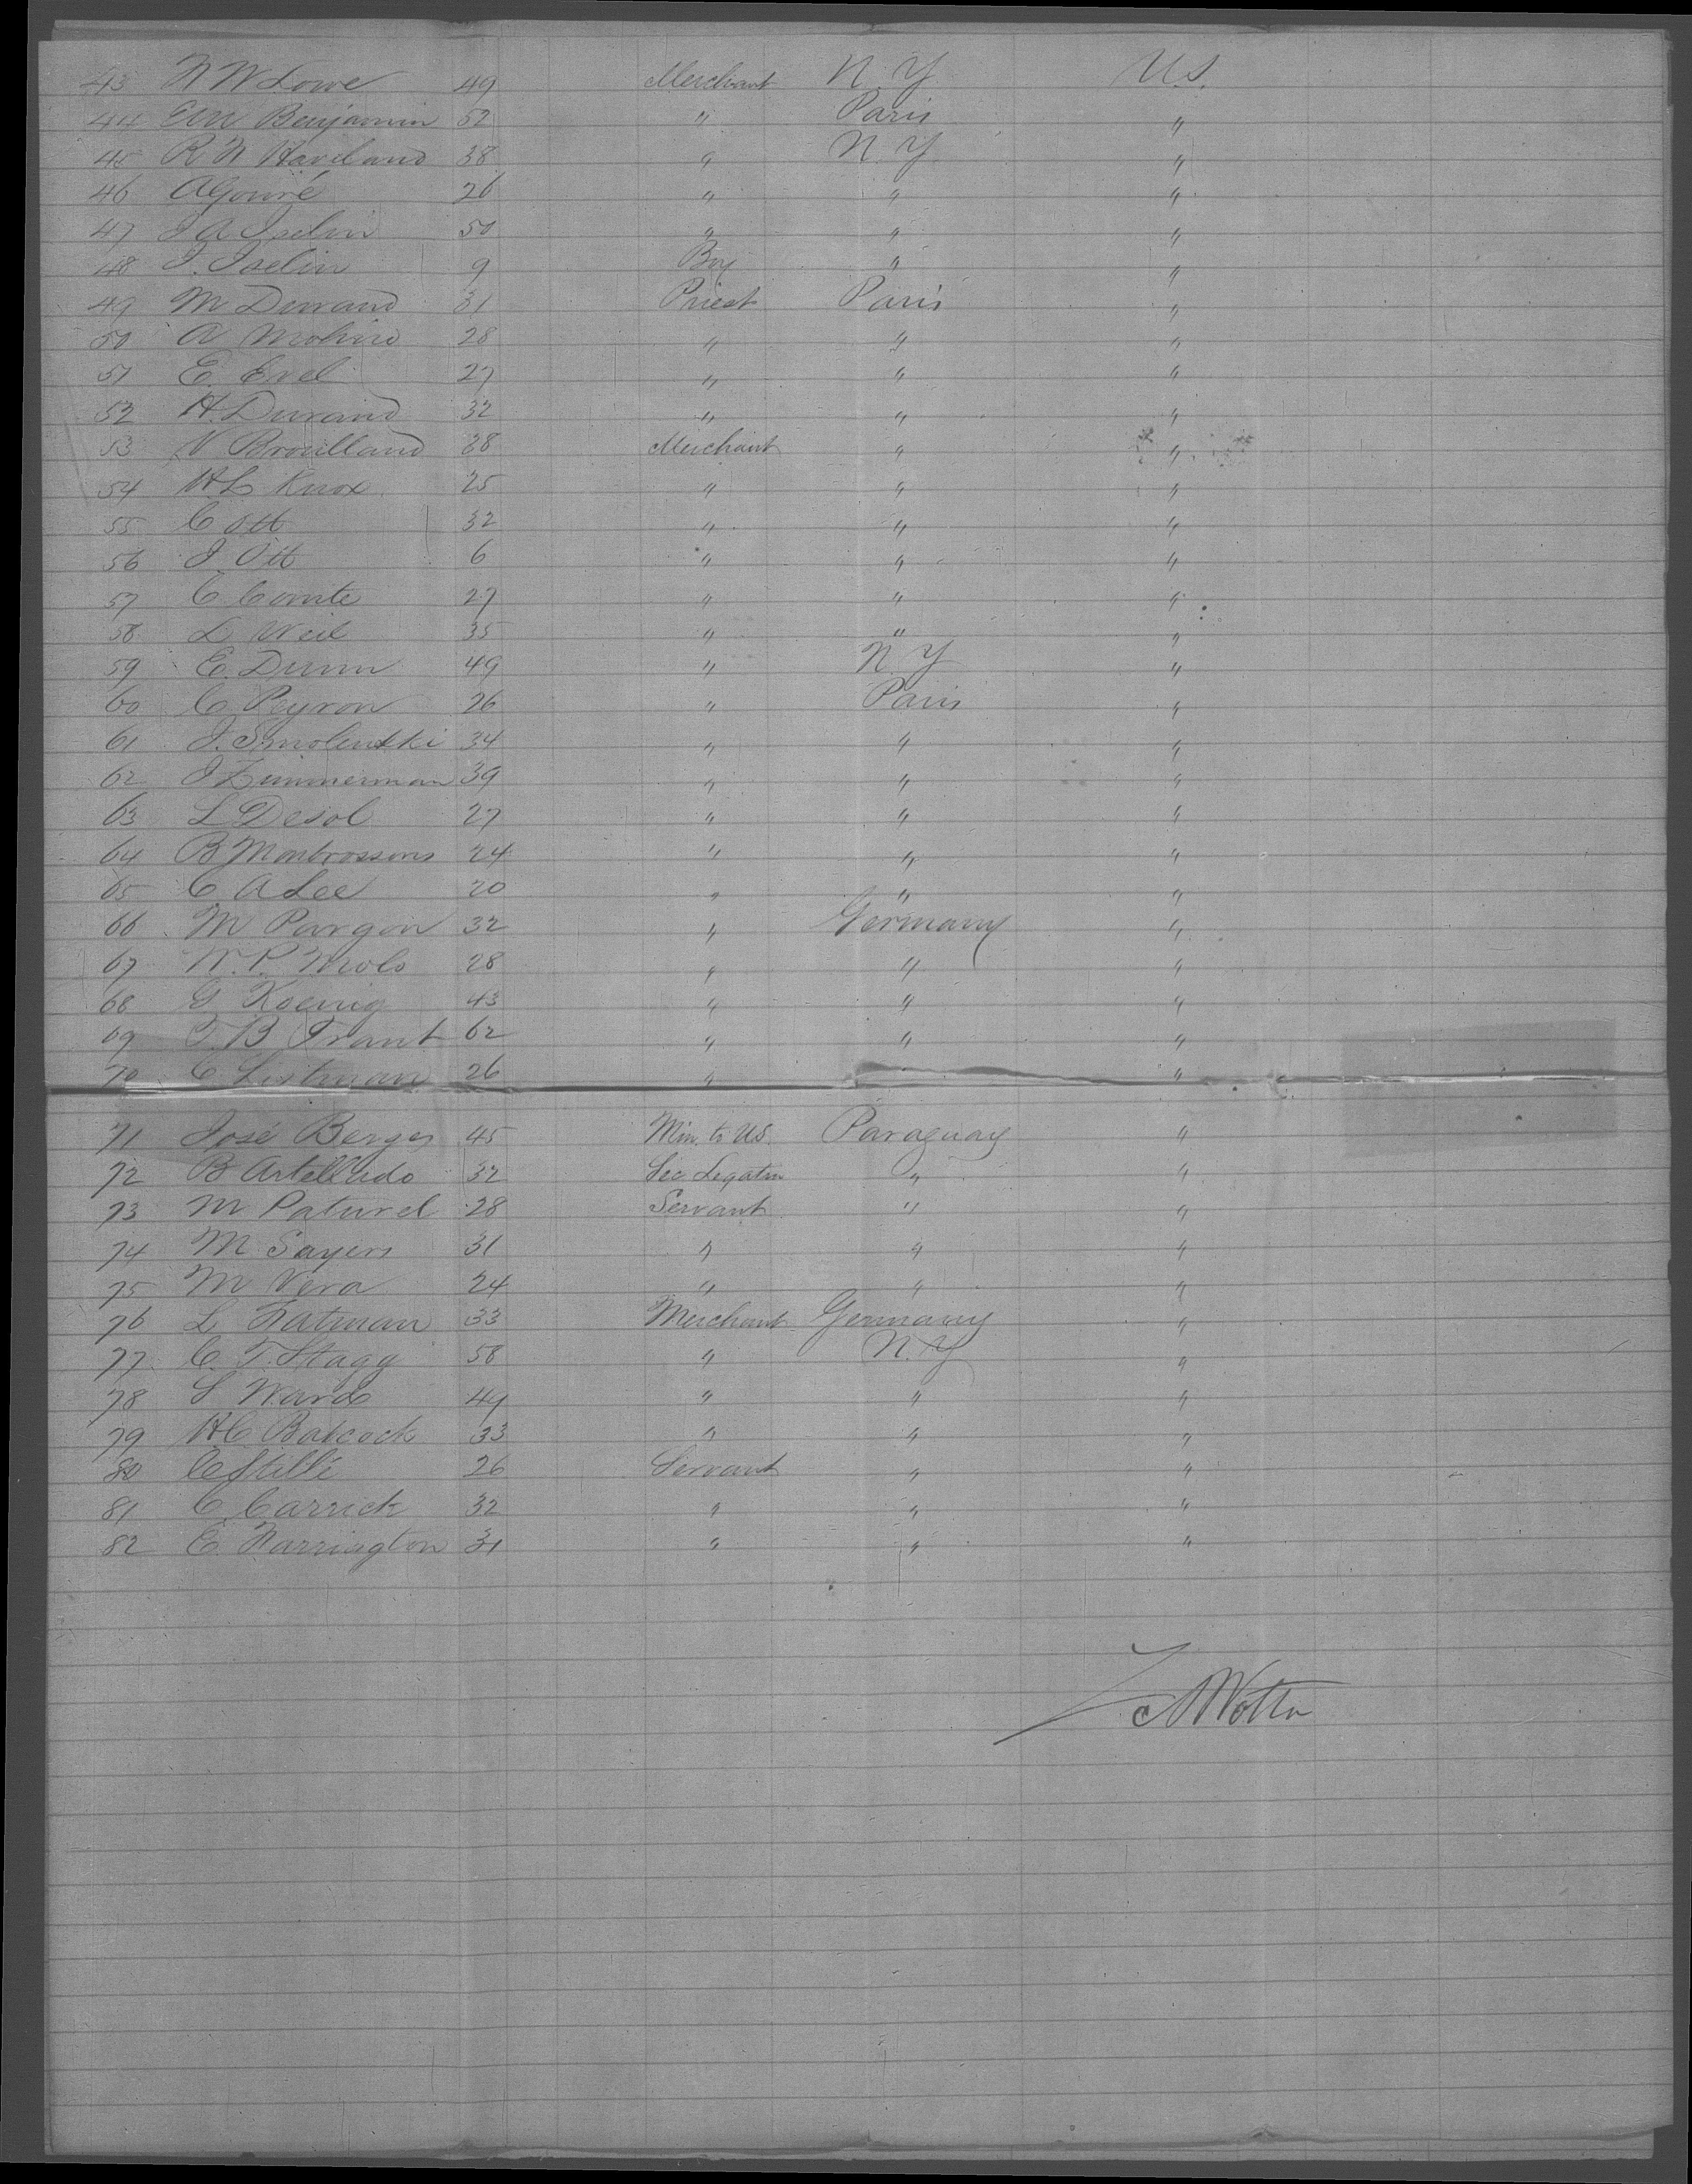 43 N W Lowe 49 Merchant N. Y U.S.
44 E W Benjamin 52 " Paris "
45 R N Haviland 38 " N. Y. "
46 A Gouré 26 " " "
47 J A Iselin 50 " " "
48 J. Iselin 9 Boy " "
49 M Durand 31 Priest Paris "
50 A Molino 28 " " "
51 E. Evel 27 " " "
52 H. Durand 32 " " "
53 V Brouilland 28 Merchant " "
54 H L Knox 25 " " "
55 C Ott 32 " " "
56 J. Ott 6 " " "
57 C Comte 27 " " "
58 L Weil 35 " " "
59 E. Dunn 49 " N. Y "
60 C. Peyron 26 " Paris "
61 J. Smolenski 34 " " "
62 J Zimmerman 39 " " "
63 L Desol 27 " " "
64 B 24 " " "
65 C A Lee 20 " " "
66 M Pargon 32 " Germany "
67 W. P. Molo 28 " " "
68 G Koenig 43 " " "
69 B Trant 62 " " "
70 C Listman 26 " "
71 José Berges 45 Min. to U.S. Paraguay "
72 B Astellado 32 Sec Legation " "
73 M Paturel 28 Servant " "
74 M Sayers 31 " " "
75 M Vera 24 " " "
76 L Fatman 33 Merchant Germany "
77 C. T. Stagg 58 " N. Y "
78 S Ward 49 " " "
79 H C Babcock 33 " " "
80 C Stillé 26 Servant " "
81 C Carrick 32 " " "
82 E. Warrington 31 " " "